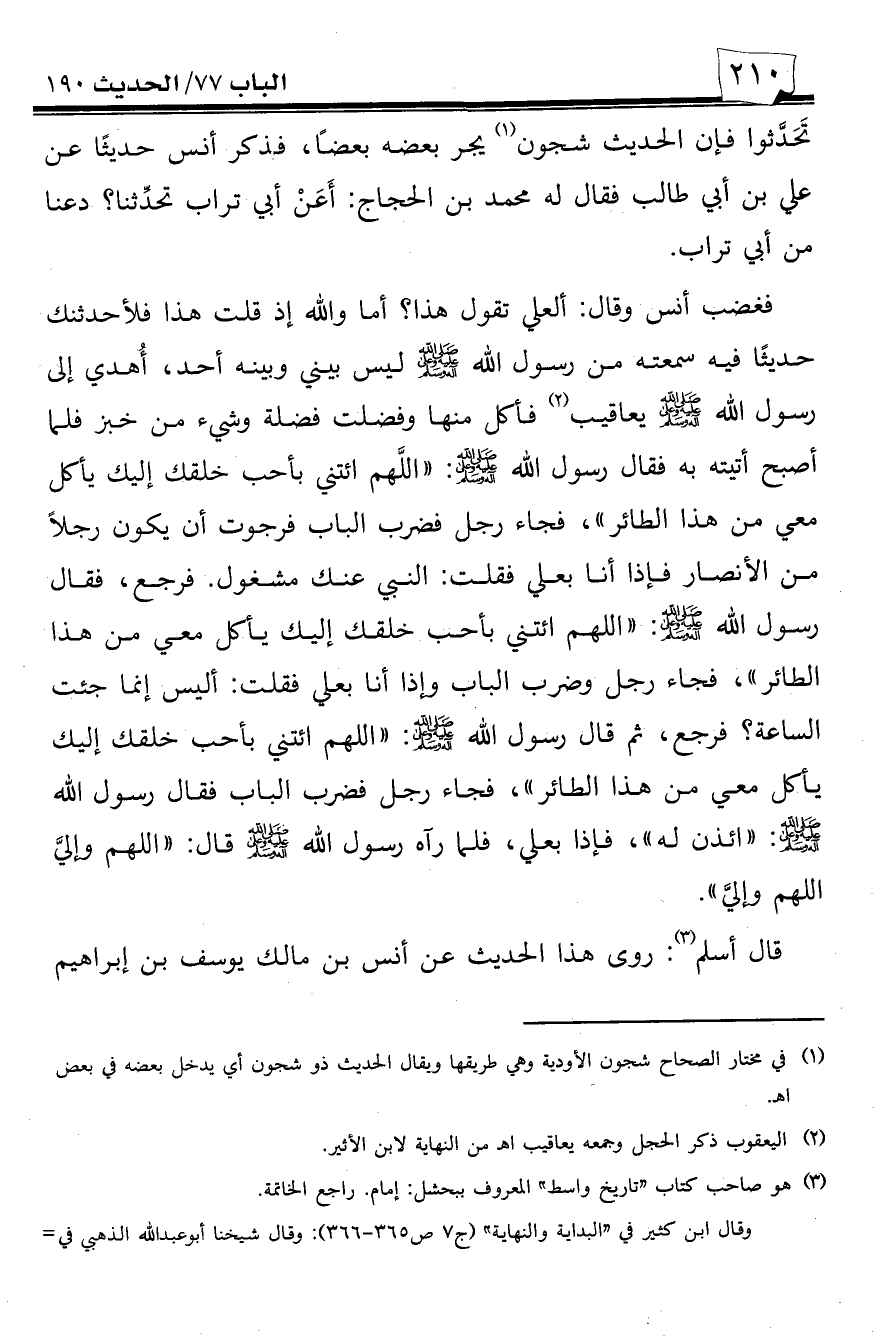 ٢١٠
الباب ٧٧/ الحديث ١٩٠
تَحَدَّثوا فإن الحديث شجون(١) يجر بعضه بعضاً، فذكر أنس حديثًا عن
علي بن أبي طالب فقال له محمد بن الحجاج: أَعَنْ أبي تراب تحدِّثنا؟ دعنا
من أبي تراب.
فغضب أنس وقال: ألعلي تقول هذا؟ أما والله إذ قلت هذا فلأحدثنك
حديثًا فيه سمعته من رسول الله ﷺ ليس بيني وبينه أحد، أُهدي إلى
رسول الله ﷺ يعاقيب(٢) فأكل منها وفضلت فضلة وشيء من خبز فلما
أصبح أتيته به فقال رسول الله ﷺ: «اللَّهم ائتني بأحب خلقك إليك يأكل
معي من هذا الطائر»، فجاء رجل فضرب الباب فرجوت أن يكون رجلاً
من الأنصار فإذا أنا بعلي فقلت: النبي عنك مشغول. فرجع، فقال
رسول الله ﷺ: «اللهم ائتني بأحب خلقك إليك يأكل معي من هذا
الطائر»، فجاء رجل وضرب الباب وإذا أنا بعلي فقلت: أليس إنما جئت
الساعة؟ فرجع، ثم قال رسول الله ﷺ: «اللهم ائتني بأحب خلقك إليك
يأكل معي من هذا الطائر»، فجاء رجل فضرب الباب فقال رسول الله
ﷺ: «ائذن له»، فإذا بعلي، فلما رآه رسول الله ﷺ قال: «اللهم وإليَّ
اللهم وإليَّ».
قال أسلم(٣): روى هذا الحديث عن أنس بن مالك يوسف بن إبراهيم
(١) في مختار الصحاح شجون الأودية وهي طريقها ويقال الحديث ذو شجون أي يدخل بعضه في بعض
اهـ.
(٢) اليعقوب ذكر الحجل وجمعه يعاقيب اهـ من النهاية لابن الأثير.
(٣) هو صاحب كتاب «تاريخ واسط» المعروف ببحشل: إمام. راجع الخاتمة.
وقال ابن كثير في «البداية والنهاية» (ج٧ ص٣٦٥-٣٦٦): وقال شيخنا أبوعبدالله الذهبي في=